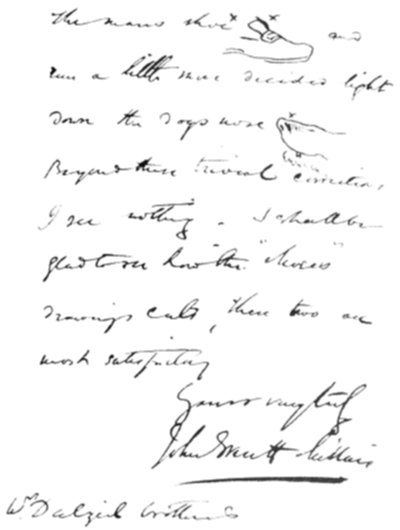 The mans shoe x and
run a little more decided light
down the dogs nose
Beyond these trivial corrections,
I see nothing. I shall be
glad to see how the "Moses"
drawings cuts, these two are
most satisfactory
Yours very truly
John Everett Millais
Dalziel Brothers